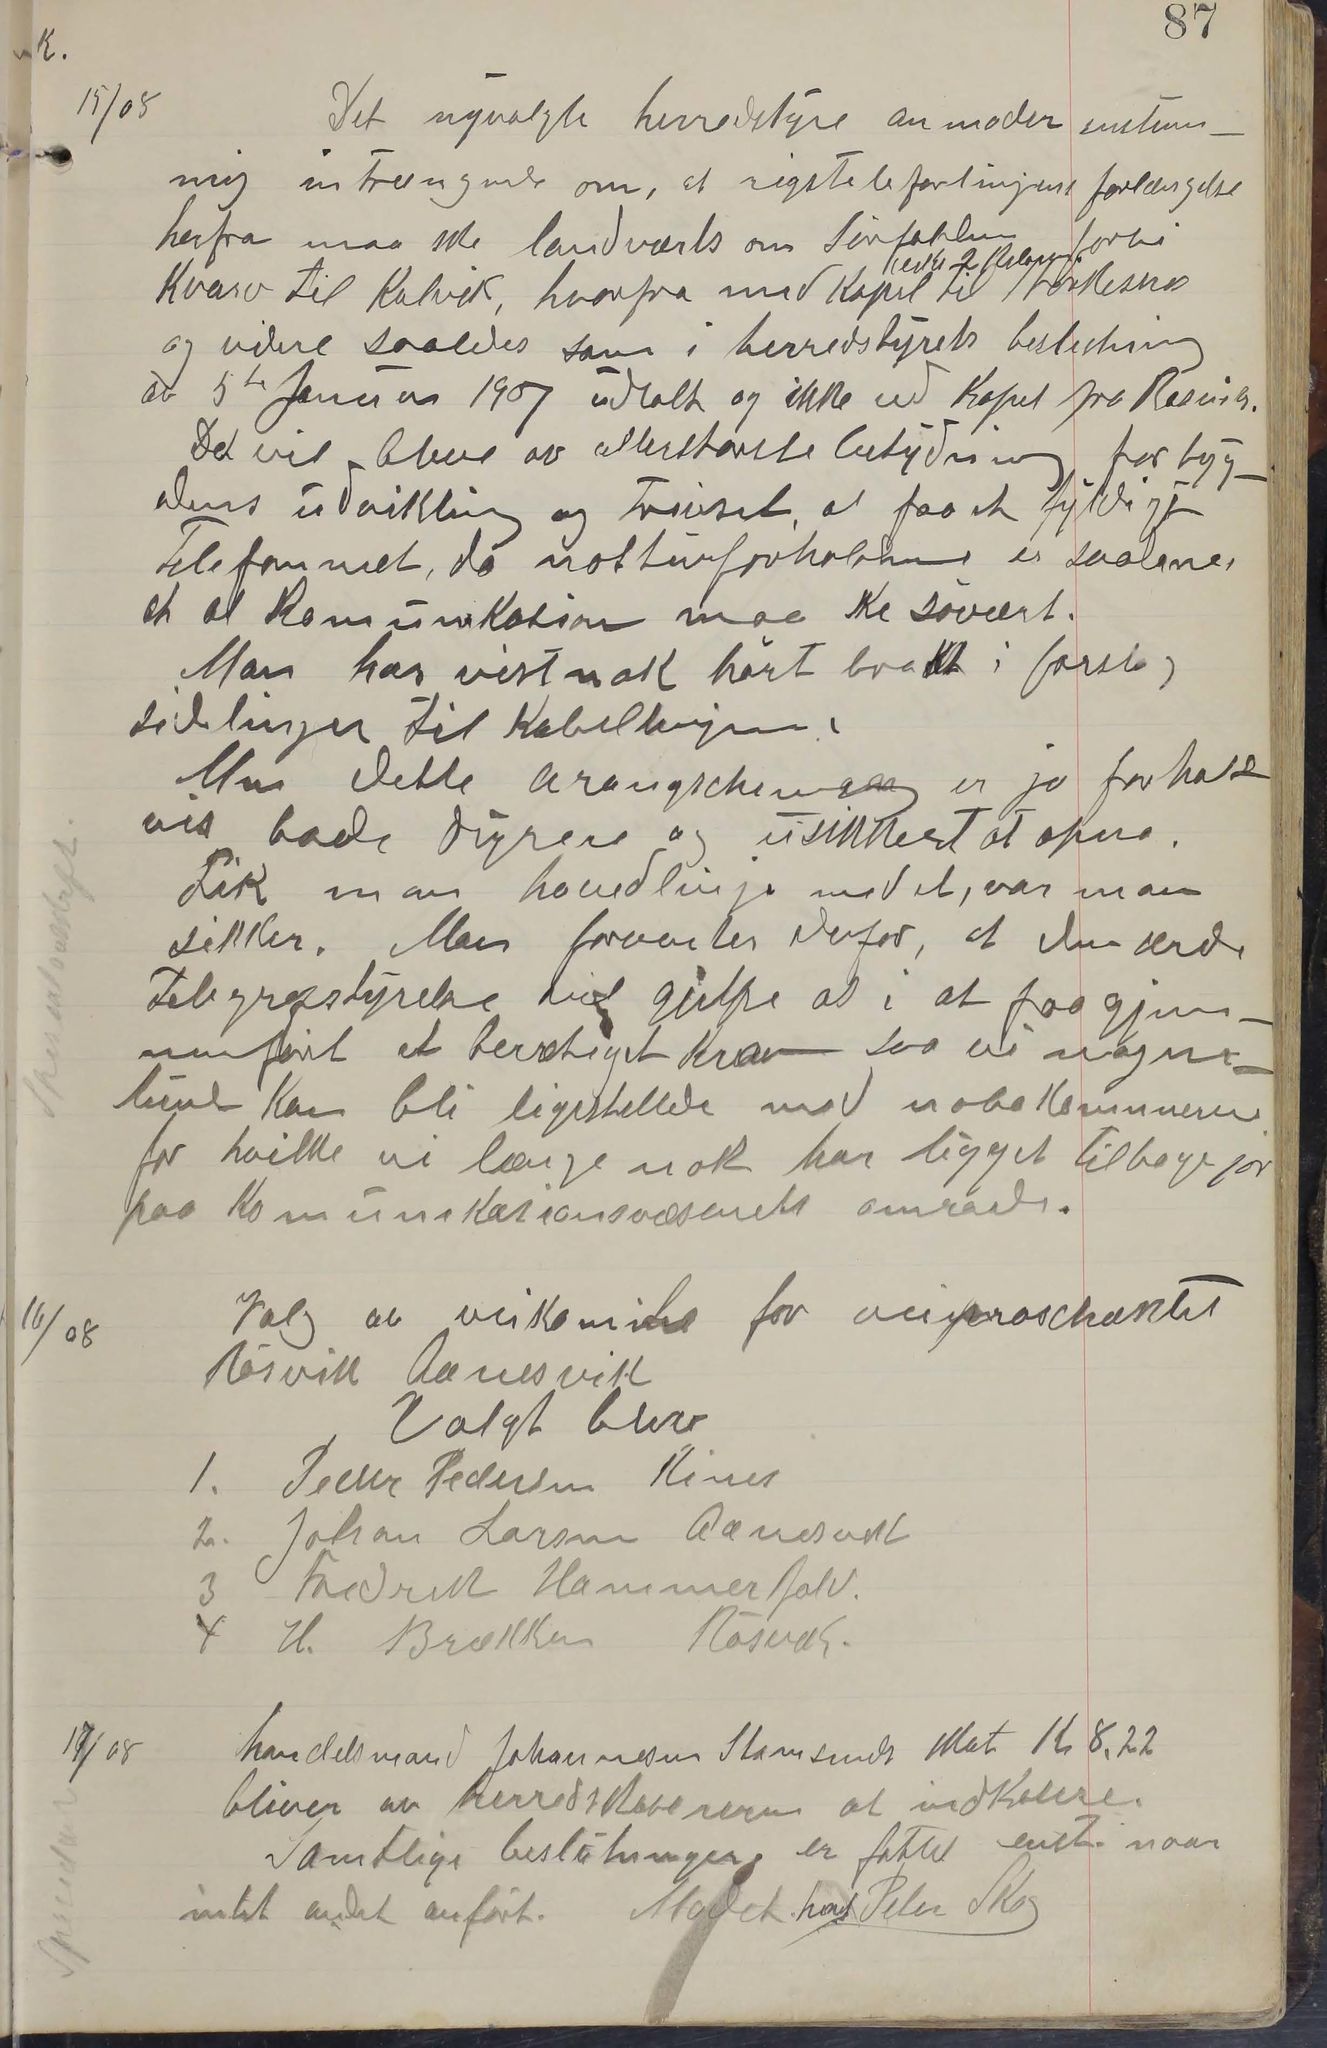 87
k.
15/08
Det nyvalgte herredstyre anmoder enstem-
mig intrængende om, at rigstelefonlinjens forlængelse
herfra maa ske landværts om Sørfolden forbi
Kvarv til Kalvik, hvorfra med Kapel til
og videre saaledes som i herredstyrets beslutning
av 5te Januar 1907 udtalt og ikke ved Kapel fra Røsvik.
Det vil bleve av allerstørste betydning for byg-
dens udvikling og trivsel, at faa et fyldigt
Telefonnet, da natturforholdene er saadane,
at al Komunikation maa ske søvært.
Man har vistnok hørt bragt i forslag
sidelinjer til Kabellinjen.
Men dette arangschemang er jo forholds
vis baade dyrere og usikkert at opna.
Fik man hovedlinje med et, var man
sikker. Man forventer derfor, at den ærede
Telegrafstyrelse vil hjelpe os i at faa gjen-
nemført et berettiget Krav saa vi nogen-
lunde Kan bli ligestillede med nabokommunerne
for hvilke vi længe nok har ligget tilbage for
paa Komunikationsvæsenets omraade.
16/08
Valg av veikomite for veiproschæktet
Røsvik Aanesvik
Valgt blev
1. Peder Pedersen Kines
2. Johan Larsen Aanesvik
3 Fredrik Hammerfald.
4 H. Brækken Røsvik.
17/08
handelsmand Johannesen Stamsunds skat Kr 8,22
bliver av herredskasereren at indkræve.
Samtlige beslutninger er fattet enst. naar
intet andet anført. Mødet hævet Peter Skog